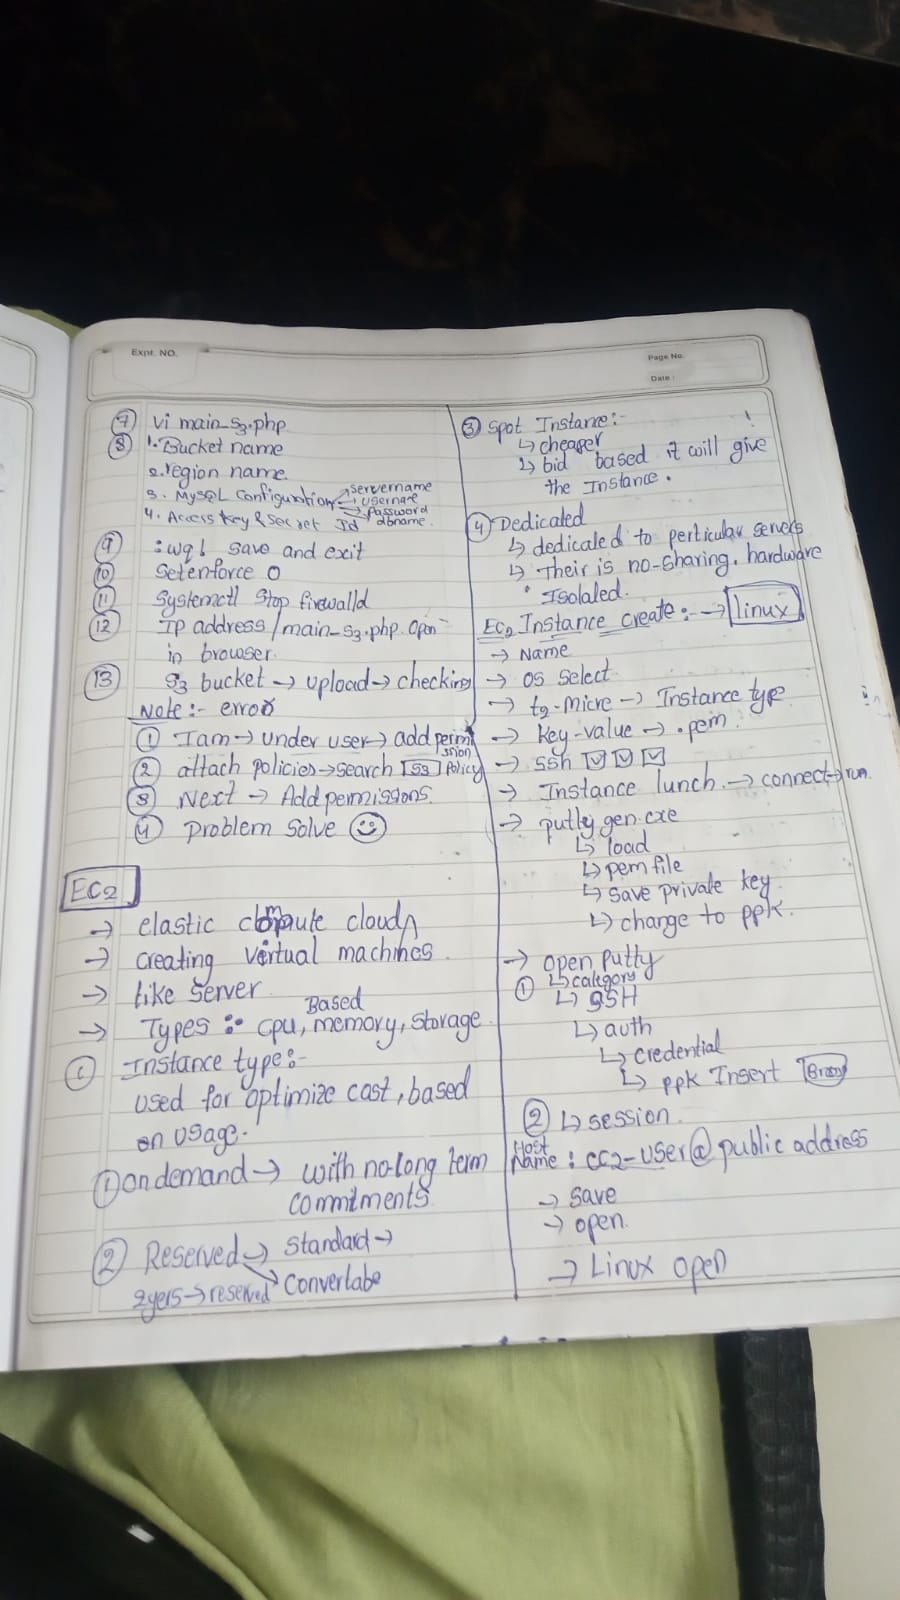 Expt. NO.
Page No.
Date :
7 Vi main_s3.php
8 1. Bucket name
2. region name
3. MySQL Configuration → servername
→ username
→ Password
→ dbname.
4. Access key & Secret Id
9 :wq! save and exit
10 Setenforce 0
11 Systemctl stop firewalld
12 IP address/main_s3.php open
in browser.
13 S3 bucket → upload → checking
Note :- error
1 Iam → under user → add permi
ssion
2 attach policies → search S3 policy
3 Next → Add permissions.
4 problem solve ☺
EC2
→ elastic compute cloud
→ creating virtual machines.
→ Like server
→ Types :- Based
cpu, memory, storage
Instance type:-
used for optimize cast, based
on usage.
1 on demand → with no-long term
commitments
2 Reserved → Standard →
2yers → reserved → Convertabe
3 Spot Instance:-
↳ cheaper
↳ bid based it will give
the Instance.
4 Dedicated
↳ dedicated to perticular servers
↳ Their is no-sharing, hardware
Isolaled.
EC2 Instance create :- → linux
→ Name
→ OS Select
→ t2-micre → Instance type
→ key-value → .pem
→ ssh ☑ ☑ ☑
→ Instance lunch → connect → run.
→ putty gen.exe
↳ load
↳ pem file
↳ save private key
↳ change to ppk.
→ open putty
1 ↳ category
↳ SSH
↳ auth
↳ credential
↳ ppk Insert
2 ↳ session.
Host
Name : cc2-user@public address
→ save
→ open.
→ Linux open